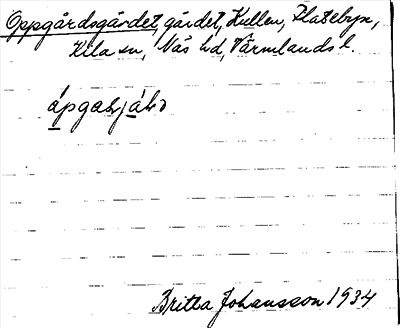 Oppgårdsgärdet, gärdet, Kullen, Platebyn,
Kila sn, Näs hd, Värmlands l.
Britta Johansson 1934